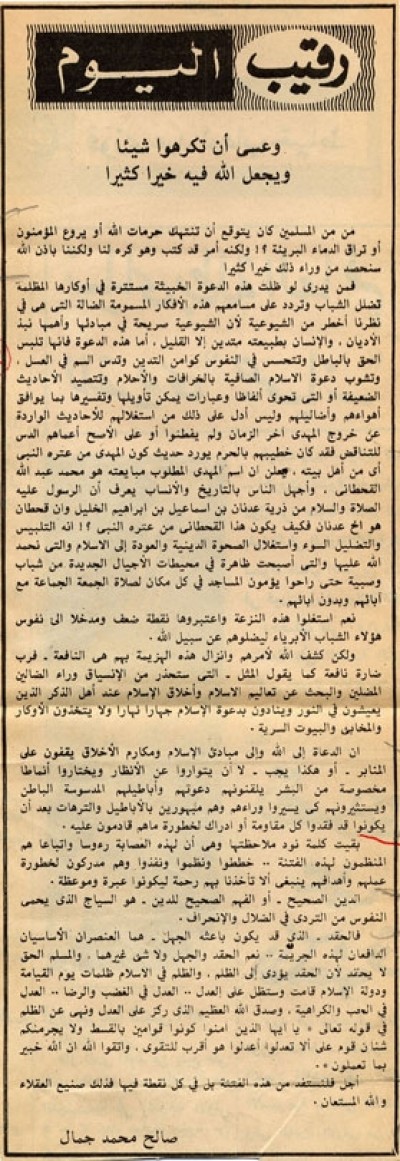 رقيب اليوم
وعسى أن تكرهوا شيئا
ويجعل الله فيه خيرا كثيرا
من من المسلمين كان يتوقع أن تنتهك حرمات الله أو يروع المؤمنون
أو تراق الدماء البريئة ؟! ولكنه أمر قد كتب وهو كره لنا ولكننا باذن الله
سنحصد من وراء ذلك خيرا كثيرا
فمن يدرى لو ظلت هذه الدعوة الخبيثة مستترة في أوكارها المظلمة
تضلل الشباب وتردد على مسامعهم هذه الأفكار المسمومة الضالة التى هى في
نظرنا أخطر من الشيوعية لأن الشيوعية صريحة في مبادئها وأهمها نبذ
الأديان ، والإنسان بطبيعته متدين إلا القليل ، أما هذه الدعوة فانها تلبس
الحق بالباطل وتتحسس في النفوس كوامن التدين وتدس السم في العسل ،
وتشوب دعوة الاسلام الصافية بالخرافات والأحلام وتتصيد الأحاديث
الضعيفة أو التى تحوى ألفاظا وعبارات يمكن تأويلها وتفسيرها بما يوافق
أهواءهم وأضاليلهم وليس أدل على ذلك من استغلالهم للأحاديث الواردة
عن خروج المهدى آخر الزمان ولم يفطنوا أو على الاسح أعماهم الدس
للتناقض فقد كان خطيبهم بالحرم يورد حديث كون المهدى من عتره النبى
أى من أهل بيته ، يعلن ان اسم المهدى المطلوب مبايعته هو محمد عبد الله
القحطانى ، وأجهل الناس بالتاريخ والأنساب يعرف أن الرسول عليه
الصلاة والسلام من ذرية عدنان بن اسماعيل بن ابراهيم الخليل وان قحطان
هو اخ عدنان فكيف يكون هذا القحطانى من عتره النبى ؟! انه التلبيس
والتضليل السوء واستغلال الصحوة الدينية والعودة إلى الاسلام والتى نحمد
الله عليها والتى أصبحت ظاهرة في محيطات الأجيال الجديدة من شباب
وصبية حتى راحوا يؤمون المساجد في كل مكان لصلاة الجمعة الجماعة مع
آبائهم وبدون آبائهم .
نعم استغلوا هذه النزعة واعتبروها نقطة ضعف ومدخلا الى نفوس
هؤلاء الشباب الأبرياء ليضلوهم عن سبيل الله .
ولكن كشف الله لأمرهم وانزال هذه الهزيمة بهم هى النافعة ـ فرب
ضارة نافعة كما يقول المثل ـ التى ستحذر من الإنسياق وراء الضالين
المضلين والبحث عن تعاليم الاسلام وأخلاق الإسلام عند أهل الذكر الذين
يعيشون في النور وينادون بدعوة الإسلام جهارا نهارا ولا يتخذون الأوكار
والمخابئ والبيوت السرية .
ان الدعاة إلى الله وإلى مبادئ الإسلام ومكارم الأخلاق يقفون على
المنابر ـ أو هكذا يجب ـ لا أن يتواروا عن الأنظار ويختاروا أنماطا
مخصوصة من البشر يلقنونهم دعوتهم وأباطيلهم المدسوسة الباطن
ويستثيرونهم كى يسيروا وراءهم وهم مبهورين بالأباطيل والترهات بعد أن
يكونوا قد فقدوا كل مقاومة أو ادراك لخطورة ماهم قادمون عليه .
بقيت كلمة نود ملاحظتها وهى أن لهذه العصابة رءوسا واتباعا هم
المنظمون لهذه الفتنة .. خططوا ونظموا ونفذوا وهم مدركون لخطورة
عملهم وأهدافهم ينبغى ألا تأخذنا بهم رحمة ليكونوا عبرة وموعظة .
الدين الصحيح ـ أو الفهم الصحيح للدين ـ هو السياج الذى يحمى
النفوس من التردى في الضلال والإنحراف .
فالحقد ـ الذى قد يكون باعثه الجهل ـ هما العنصران الأساسيان
الدافعان لهذه الجريمة .. نعم الحقد والجهل ولا شئ غيرهما ، والمسلم الحق
لا يحقد لأن الحقد يؤدى إلى الظلم ، والظلم في الاسلام ظلمات يوم القيامة
ودولة الإسلام قامت وستظل على العدل .. العدل في الغضب والرضا .. العدل
في الحب والكراهية ، وصدق الله العظيم الذى ركز على العدل ونهى عن الظلم
في قوله تعالى « يا ايها الذين امنوا كونوا قوامين بالقسط ولا يجرمنكم
شنان قوم على ألا تعدلوا أعدلوا هو أقرب للتقوى ، واتقوا الله ان الله خبير
بما تعملون » .
أجل فلنستفد من هذه الفتنة بل في كل نقطة فيها فذلك صنيع العقلاء
والله المستعان .
صالح محمد جمال